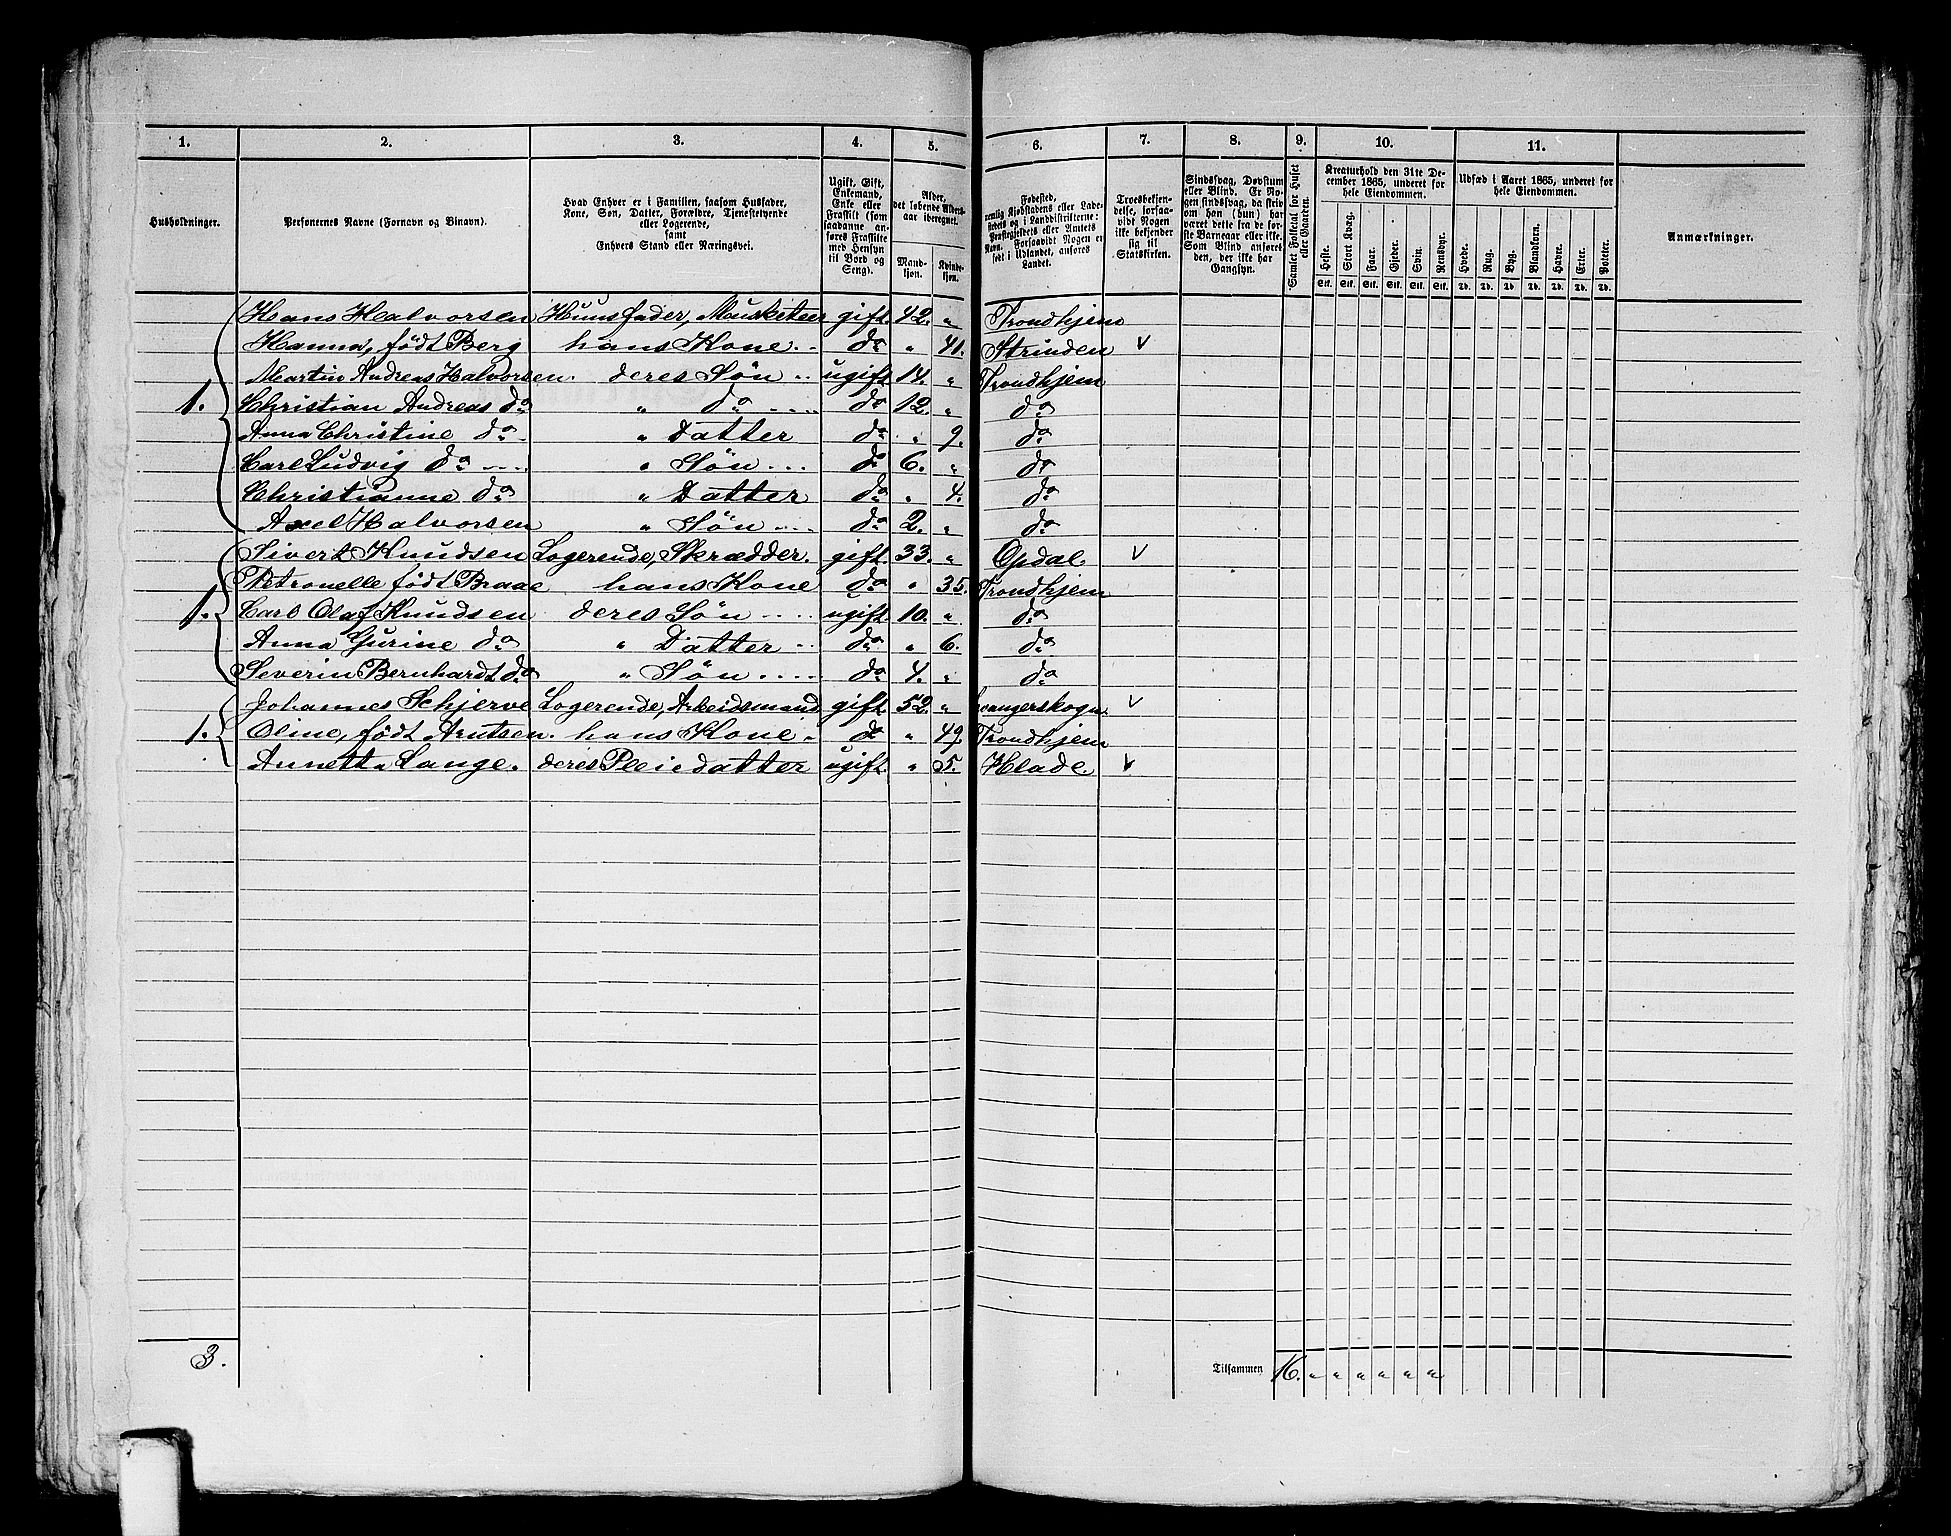 1. 2. 3. 4. 5. 6. 7. 8. 9. 10. 11.
Husholdninger.
Personernes Navne (Fornavn og Binavn).
Hvad Enhver er i Familien, saasom Husfader,
Kone, Søn, Datter, Forældre, Tjenestetyende
eller Logerende,
samt
Enhvers Stand eller Næringsvei.
Ugift, Gift,
Enkemand,
Enke eller
Fraskilt (som
saadanne an-
føres Fraskilte
med Hensyn
til Bord og
Seng).
Alder,
det løbende Alders-
aar iberegnet.
Mand-
kjøn.
Kvinde-
kjøn.
Fødested,
nemlig Kjøbstadens eller Lade-
stedets og i Landdistrikterne:
Præstegjeldets eller Amtets
Navn. Forsaavidt Nogen er
født i Udlandet, anføres
Landet.
Troesbekjen-
delse, forsaa-
vidt Nogen
ikke bekjender
sig til
Statskirken.
Sindssvag, Døvstum
eller Blind. Er No-
gen sindssvag, da skriv
om han (hun) har
været dette fra de før-
ste Barneaar eller ikke.
Som Blind anføres
den, der ikke har
Gangsyn.
Samlet Folketal for Huset
eller Gaarden.
Kreaturhold den 31te De-
cember 1865, underet for
hele Eiendommen.
Heste. Stort Kvæg. Faar. Gjeder. Svin. Rensdyr.
Stk. Stk. Stk. Stk. Stk. Stk.
Udsæd i Aaret 1865, underet for
hele Eiendommen.
Hvede. Rug. Byg. Blandkorn. Havre. Erter. Poteter.
Td. Td. Td. Td. Td. Td. Td.
Anmærkninger.
Hans Halvorsen Huusfader, Musketeer gift. 42. " Trondhjem
Hanna, født Berg hans Kone do " 41. Strinden v
Martin Andreas Halvorsen. deres Søn ugift. 14. " Trondhjem
1. Christian Andreas do " do do 12. " do
Anna Christine do " Datter do " 9. do
Carl Ludvig do " Søn do 6. " do
Christianne do " Datter do " 4. do
Axel Halvorsen " Søn do 2. " do
Sivert Knudsen Logerende, Skrædder. gift. 33. " Opdal. v
Petronelle født Braae hans Kone do " 35. Trondhjem
1. Carl Olaf Knudsen deres Søn ugift. 10. " do
Anna Gurine do " Datter do " 6. do
Severin Bernhardt do " Søn do 4. " do
Johannes Schjerve Logerende, Arbeidsmand gift. 52. " v
1. Oline, født Arntsen. hans Kone do " 49. Trondhjem
Annetta Lange. deres Pleiedatter ugift. " 5. Hlade. v
3. Tilsammen 16. " " " " " "